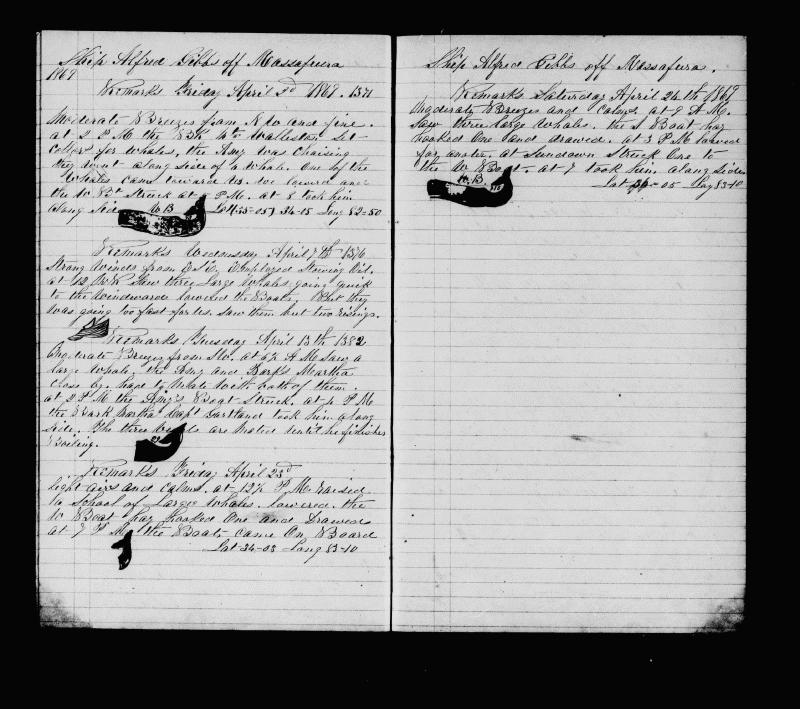 Ship Alfred Gibbs off Massafuera
1869
Remarks Friday April 2d 1869. 1371
Moderate Breezes from N W and fine
at 2 P M the NBK Wm Wallister. Set
Colors for Whales, the Amy was Chaising
they went along side of a Whale. One of the
Whales came toward us. we lowerd and
the W Bt Struck at P M. at 8 took him
along Side W B Lat 34-15 Long 82-50
Remarks Wednsday April 7th 1376
Strong Winds from Employed Stowing Oil.
at 12 Saw three Large Whales going quick
to the Windward lowered the Boats, But they
Was going too fast for us. Saw them but two risings.
Remarks Tuesday April 13th 1382
Moderate Breezes from at 6½ A M Saw a
large Whale. the Amy and Bark Martha
Close by. had to Mate With both of them.
at 2 P M the Amy's Boat Struck. at 4 P M
the Bark Martha Capt Gartland took him along
Side. The three are Mated until he finishes
Boiling.
Remarks Friday April 23d
light airs and Calms. at 12½ P M. Raised
a School of Large Whales. lowered. the
W Boat har hooked One and Drawed
at 7 P M. the Boats came On Board
Lat 34-03 Long 83-10
Ship Alfred Gibbs off Massafuera.
Remarks Saturday April 24th 1869
Moderate Breezes and Calms at 9 A M.
Saw three large Whales. the S Boat har
hooked One and drawed. at 3 P M lowered
for another. at Sundown Struck One to
the W Boat. at 7 took him along Side
W. B. Lat 05 Long 83-10